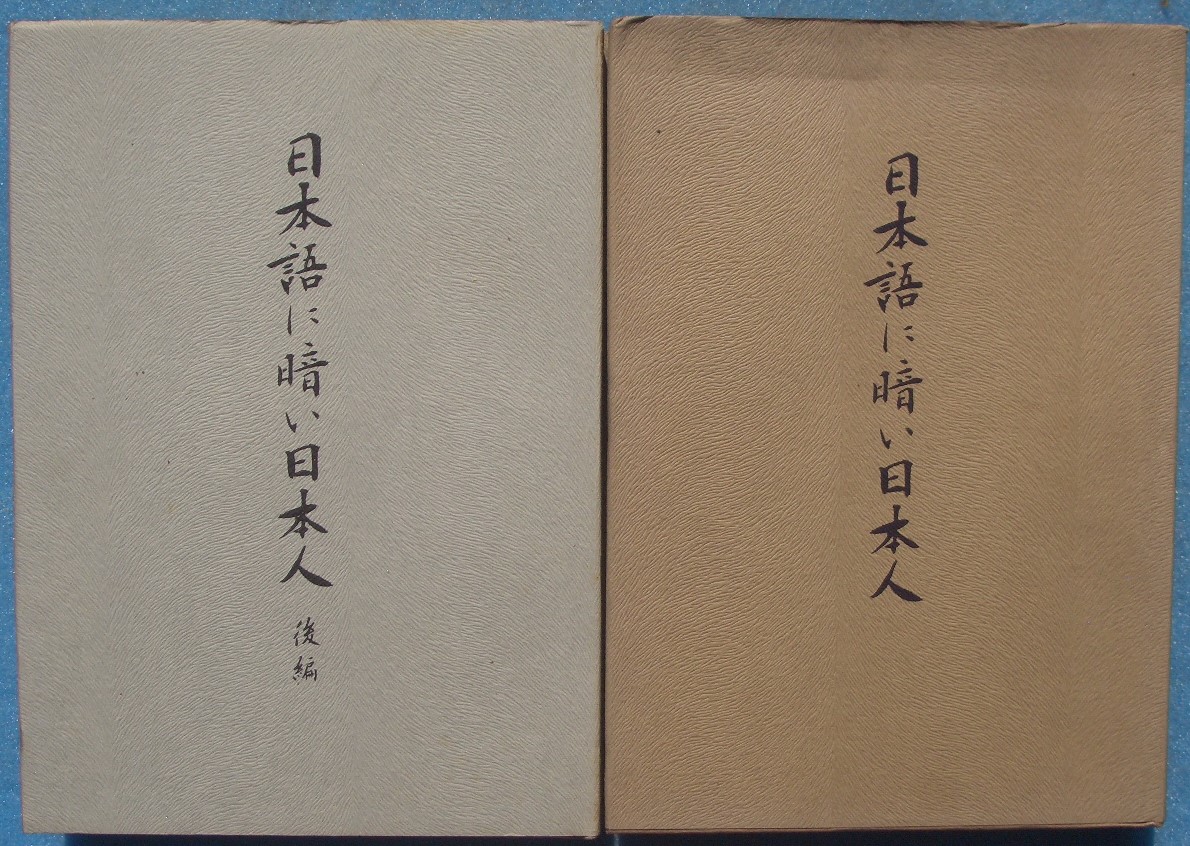 日本語に暗い日本人
日本語に暗い日本人 後編